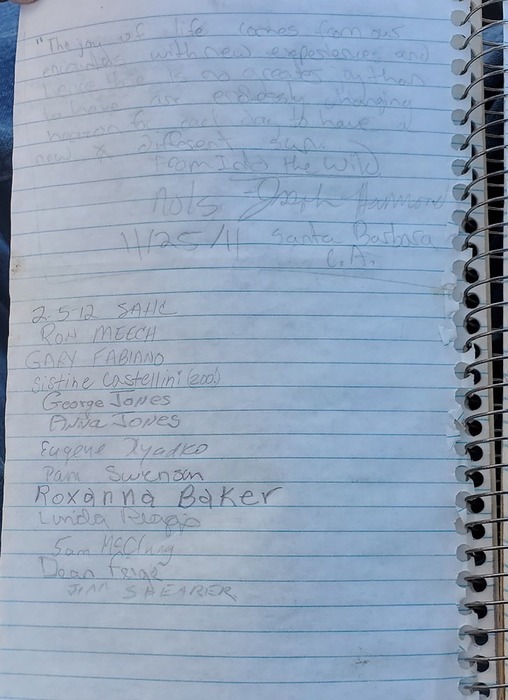 "The joy of life comes from our
encounters with new experiences and
hence there is no greater joy than
to have an endlessly changing
horizon for each day to have a
new & different sun.
From Into the Wild
Nols Joseph Hammond
11/25/11 Santa Barbara
C.A.
2.5.12 SAHC
RON MEECH
GARY FABIANO
Sistine Castellini (200!)
George JONES
ANNA JONES
Eugene Dyadko
Pam Swenson
Roxanna Baker
Linda
Sam McClung
Dean
JIM SHEARER